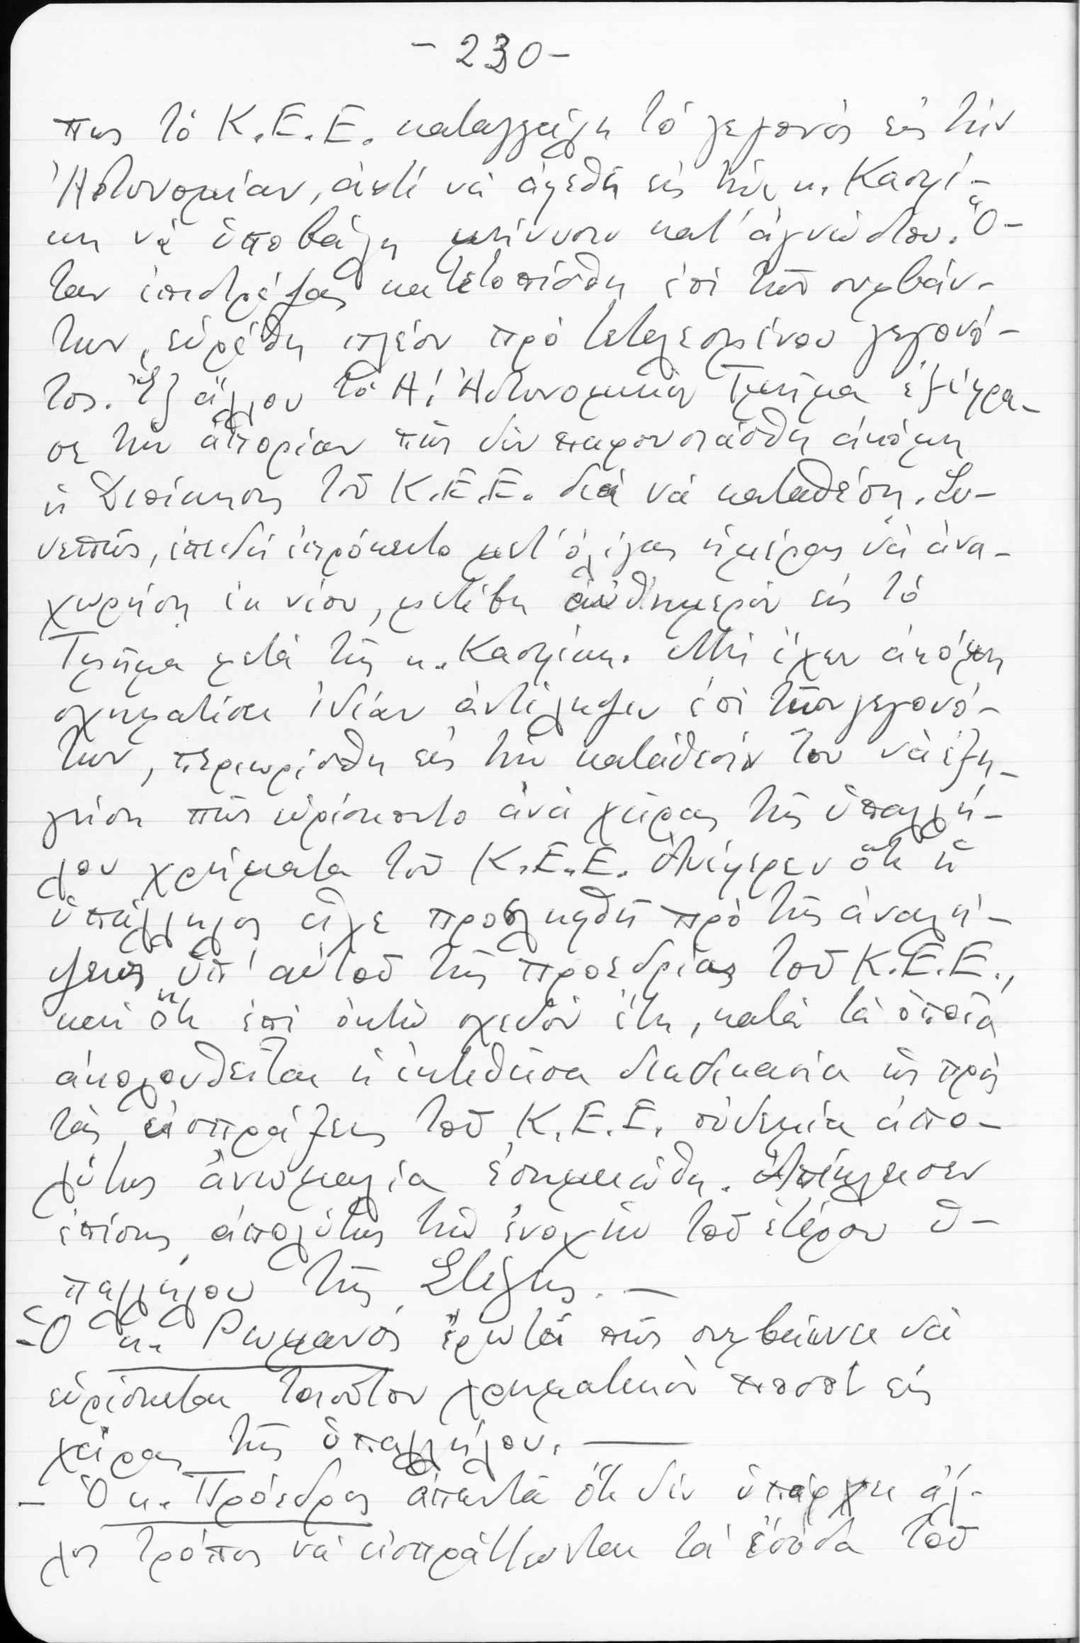 - 230 -
πως τό Κ.Ε.Ε. καταγγείλη τό γεγονός εἰς τήν
Ἀστυνομίαν, ἀντί νά ἀφεθῆ εἰς τήν κ. Κασιμί-
κη νά ὑποβάλη μήνυσιν κατ' ἀγνώστου. Ὅ-
ταν ἐπιστρέψας κατετοπίσθη ἐπί τῶν συμβάν-
των, εὑρέθη πλέον πρό τετελεσμένου γεγονό-
τος. Ἐξ ἄλλου τό Α! Ἀστυνομικόν Τμῆμα ἐξέφρα-
σε τήν ἀπορίαν πῶς δέν παρουσιάσθη ἀκόμη
ἡ Διοίκησις τοῦ Κ.Ε.Ε. διά νά καταθέση. Συ-
νεπῶς, ἐπειδή ἐπρόκειτο μετ' ὀλίγας ἡμέρας νά ἀνα-
χωρήση ἐκ νέου, μετέβη αὐθημερόν εἰς τό
Τμῆμα μετά τῆς κ. Κασιμίκη. Μή ἔχων ἀκόμη
σχηματίσει ἰδίαν ἀντίληψιν ἐπί τῶν γεγονό-
των, περιωρίσθη εἰς τήν κατάθεσίν του νά ἐξη-
γήση πῶς εὑρίσκοντο ἀνά χεῖρας τῆς ὑπαλλή-
λου χρήματα τοῦ Κ.Ε.Ε. Ἀνέφερεν ὅτι ἡ
ὑπάλληλος εἶχε προσληφθῆ πρό τῆς ἀναλή-
ψεως ὑπ' αὐτοῦ τῆς προεδρίας τοῦ Κ.Ε.Ε.,
καί ὅτι ἐπί ὀκτώ σχεδόν ἔτη, κατά τά ὁποῖα
ἀκολουθεῖται ἡ ἐκτεθεῖσα διαδικασία ὡς πρός
τάς εἰσπράξεις τοῦ Κ.Ε.Ε. οὐδεμία ἀπο-
λύτως ἀνωμαλία ἐσημειώθη. Ἀπέκλεισεν
ἐπίσης ἀπολύτως τήν ἐνοχήν τοῦ ἑτέρου ὑ-
παλλήλου τῆς Στέγης. —
- Ὁ κ. Ρωμανός ἐρωτᾶ πῶς συμβαίνει νά
εὑρίσκεται τοιοῦτον χρηματικόν ποσόν εἰς
χεῖρας τῆς ὑπαλλήλου. —
- Ὁ κ. Πρόεδρος ἀπαντᾶ ὅτι δέν ὑπάρχει ἄλ-
λος τρόπος νά εἰσπράττωνται τά ἔσοδα τοῦ